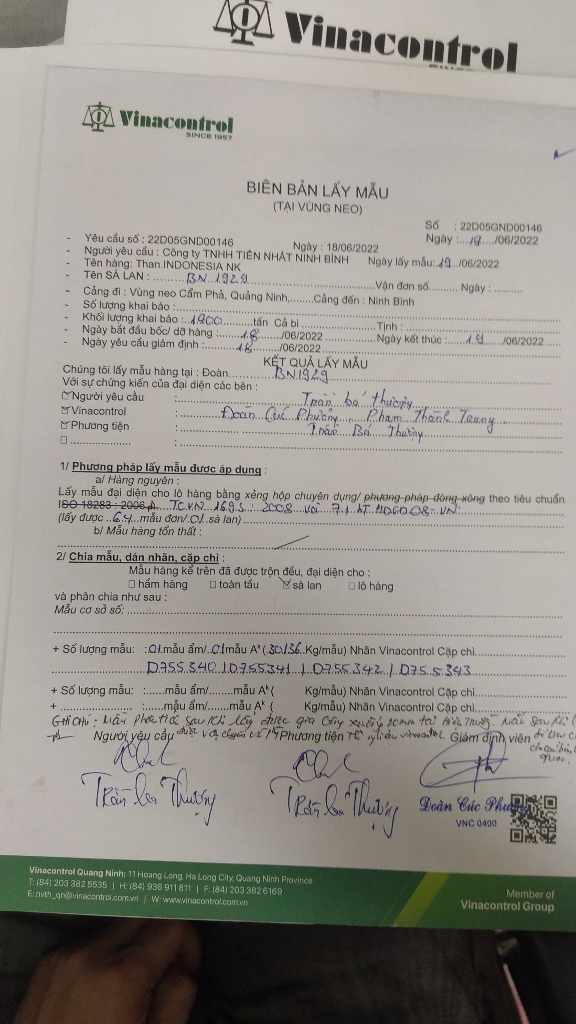 Vinacontrol
Vinacontrol
SINCE 1957
BIÊN BẢN LẤY MẪU
(TẠI VÙNG NEO)
Số : 22D05GND00146
Ngày :....19..../06/2022
- Yêu cầu số : 22D05GND00146 Ngày : 18/06/2022
- Người yêu cầu : Công ty TNHH TIÊN NHẤT NINH BÌNH Ngày lấy mẫu: 19 /06/2022
- Tên hàng: Than.INDONESIA NK
- Tên SÀ LAN : BN 1929 Vận đơn số Ngày :
- Cảng đi : Vùng neo Cẩm Phả, Quảng Ninh, Cảng đến : Ninh Bình
- Số lượng khai báo :
- Khối lượng khai báo : 1900 tấn Cả bì Tịnh :
- Ngày bắt đầu bốc/ dỡ hàng : 18 /06/2022 Ngày kết thúc : 19 /06/2022
- Ngày yêu cầu giám định : 18 /06/2022
KẾT QUẢ LẤY MẪU
Chúng tôi lấy mẫu hàng tại : Đoàn BN1929
Với sự chứng kiến của đại diện các bên :
Người yêu cầu : Trần bá thượng
Vinacontrol : Đoàn Cúc Phương Phạm Thành Trung
Phương tiện : Trần Bá Thượng
1/ Phương pháp lấy mẫu được áp dụng :
a/ Hàng nguyên :
Lấy mẫu đại diện cho lô hàng bằng xẻng hộp chuyên dụng/ phương pháp đóng xông theo tiêu chuẩn
ISO 18283 : 2006 TCVN 1693 : 2008 và 7.1 HD6D08-VN
(lấy được 64 mẫu đơn/ 01 sà lan)
b/ Mẫu hàng tổn thất :
2/ Chia mẫu, dán nhãn, cặp chì :
Mẫu hàng kể trên đã được trộn đều, đại diện cho :
hầm hàng toàn tầu sà lan lô hàng
và phân chia như sau :
Mẫu cơ sở số:
+ Số lượng mẫu: 01 mẫu ẩm/ 01 mẫu A* ( 30/36 Kg/mẫu) Nhãn Vinacontrol Cặp chì
D755340 / D755341 / D755342 / D755343
+ Số lượng mẫu: mẫu ẩm/ mẫu A* ( Kg/mẫu) Nhãn Vinacontrol Cặp chì
+ mẫu ẩm/ mẫu A* ( Kg/mẫu) Nhãn Vinacontrol Cặp chì
Ghi chú : Mẫu phân tích sau khi lấy được gia công xuống 20mm tại hiện trường Mẫu sau khi
Người yêu cầu Phương tiện Giám định viên
Trần bá Thượng Trần bá Thượng Đoàn Cúc Phương
VNC 0400
Vinacontrol Quang Ninh: 11 Hoang Long, Ha Long City, Quang Ninh Province
T: (84) 203 382 5535 | H: (84) 936 911 811 | F: (84) 203 382 6169
E: nvth_qn@vinacontrol.com.vn | W: www.vinacontrol.com.vn
Member of
Vinacontrol Group